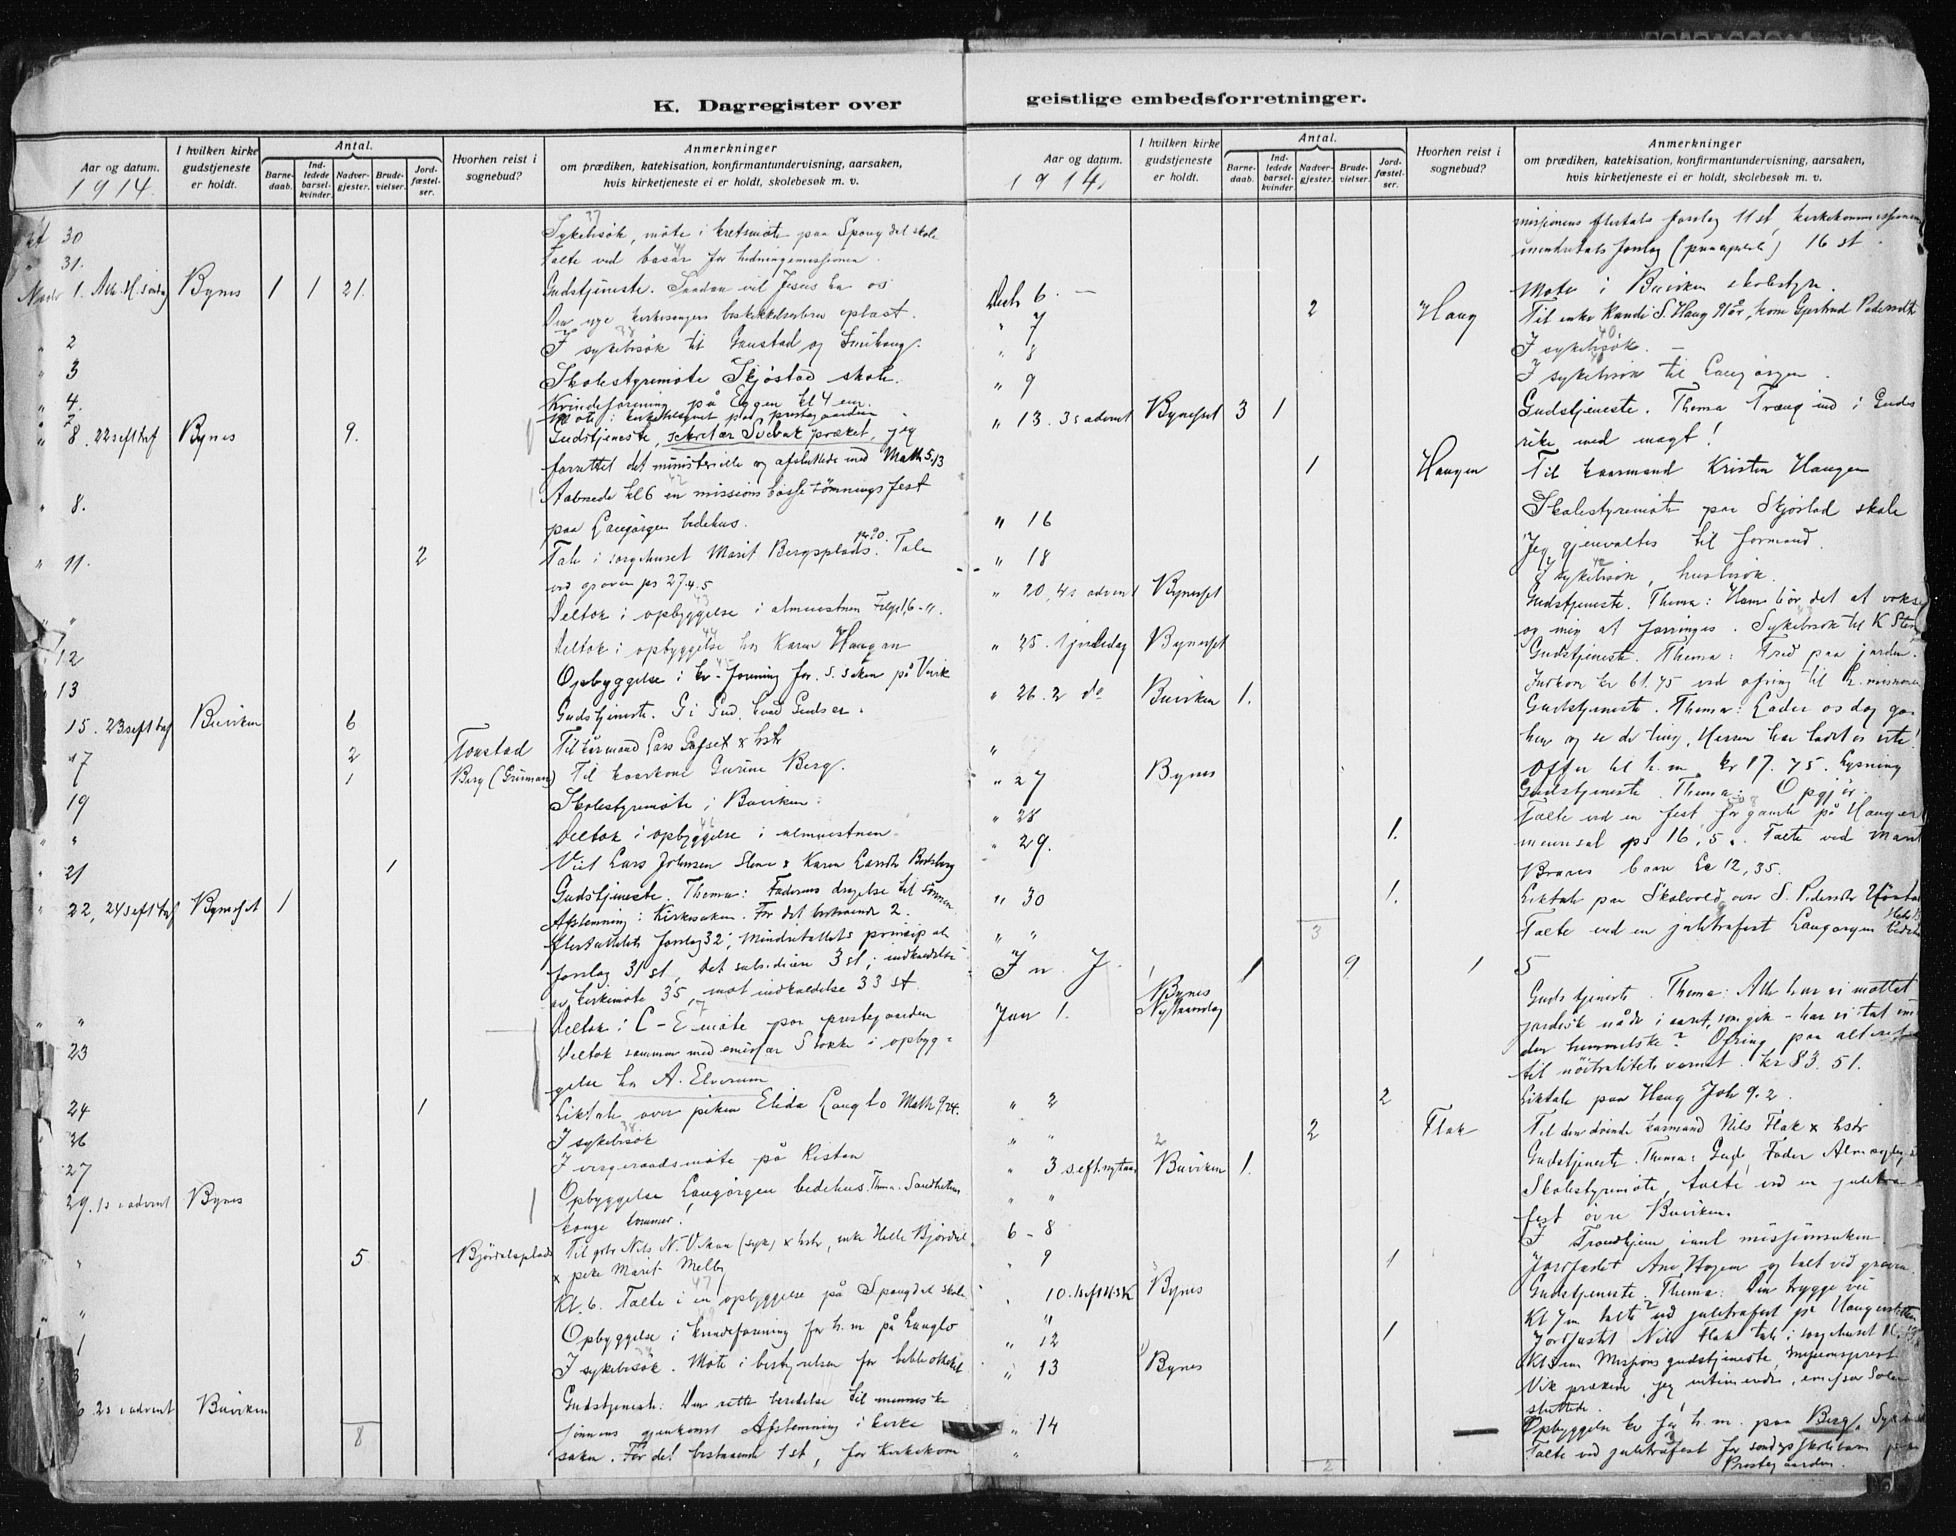 K. Dagregister over
geistlige embedsforretninger.
Aar og datum.
1914.
I hvilken kirke gudstjeneste er holdt.
Antal.
Barnedaab.
Indledede barselkvinder.
Nadvergjester.
Brudevielser.
Jordfæstelser.
Hvorhen reist i sognebud?
Anmerkninger
om prædiken, katekisation, konfirmantundervisning, aarsaken,
hvis kirketjeneste ei er holdt, skolebesøk m. v.
30 Sykebesök, möte i kretsmöte paa Spongdal skole
31. Talte ved basar for hedningemissjonen.
1. Alle H. söndag Bynes 1 1 21. Gudstjeneste. Saadan vil Jesus ha os
Den nye kirkesangers beskikkelsesbrev oplæst.
" 2 I sykebesök til
" 3 Skolestyremöte Skjöstad skole.
" 4. Kvindeforening på Eggen kl 4 em.
" 7 Möte i paa prestegaarden
" 8. 22 s eft tref Bynes 9. Gudstjeneste, sekretær Svebak præket, jeg
forrettet det ministerielle og afsluttede med Math 5.13
" 8. Aabnede kl 6 en missions bösse tömnings fest
paa Langörgen bedehus.
" 11. 2 Tale i sorgehuset Marit Bergsplads. Tale
ved graven ps 27 4.5
" " Deltok i opbyggelse i almuestuen
12 Deltok i opbyggelse hos Karen Haugan
13 Opbyggelse i kv-forening for s. saken på
15. 23 s eft tref Buviken 6 Gudstjeneste. Gi Gud, hvad Guds er.
17 2 Tonstad Til kårmand Lars Gafset x hstr
1 Berg Til kaarkone Gurine Berg.
19 Skolestyremöte i Buviken.
" " Deltok i opbyggelse i almuestuen
" 21 1 Viet Lars Johnsen Stene x Karen
" 22, 24 s eft tref Byneset 1 Gudstjeneste. Thema: Faderens dragelse til sönnen
Afstemning i Kirkesaken. For det bestaaende 2.
Flertallets forslag 32, Mindretallets principale
forslag 31 st, det subsidiære 3 st, indkaldelse
av kirkemöte 35, mot indkaldelse 33 st.
" " Deltok i C-E möte paa prestegaarden
23 Deltok sammen med emissær Stokke i opbyg-
gelse hos A. Elverum
24 1 Liktale over piken Elida Langlo Math 9 24.
26 I sykebesök
27 I vergeraadsmöte på Ristan
29. 1 s i advent Bynes Opbyggelse Langörgen bedehus. Thema. Sandhetens
konge kommer.
" 5 Björdalsplads Til gbr Nils N. Vikan (syk) x hstr, enke Helle Björdal
x pike Marit Melby
" Kl. 6. Talte i en opbyggelse på Spongdal skole
1 Opbyggelse i kvindeforening for h. m på Langlo
3 I sykebesök. Möte i bestyrelsen for biblioteket
6. 2 s i advent Buviken Gudstjeneste: Den rette beredelse til menneske
sönnens gjenkomst. Afstemning i kirke
8 saken. For det bestaaende 1 st, for Kirkekom
Aar og datum.
1914.
I hvilken kirke gudstjeneste er holdt.
Antal.
Barnedaab.
Indledede barselkvinder.
Nadvergjester.
Brudevielser.
Jordfæstelser.
Hvorhen reist i sognebud?
Anmerkninger
om prædiken, katekisation, konfirmantundervisning, aarsaken,
hvis kirketjeneste ei er holdt, skolebesøk m. v.
missjonens flertals forslag 11 st, kirkekommissjonens
mindretals forslag 16 st.
Decb 6. — Möte i Buviken skolestyre.
" 7 2 Haug Til enke Kandi S. Haug 91 år, kone Gjertrud Pedersdtr
" 8 I sykebesök. —
" 9 I sykebesök til Langörgen.
" 13. 3 s advent Byneset 3 1 Gudstjeneste. Thema Træng ind i Guds
rike med magt!
1 Haugen Til kaarmand Kristen Haugen
" 16 Skolestyremöte paa Skjöstad skole
Jeg gjenvaltes til formand.
" 18 I sykebesök, husbesök.
" 20, 4 s advent Byneset Gudstjeneste. Thema: Ham bör det at vokse
og mig at forringes. Sykebesök til K Sten
" 25. 1 juledag Byneset Gudstjeneste. Thema: Fred paa jorden.
Indkom kr 61.75 ved ofring til h. missionen
" 26. 2 do Buviken 1. Gudstjeneste. Thema: Lader os dog gaa
hen og se de ting, Herren har ladet os vite!
" Offer til h. m. kr 17.75. Lysning
" 27 Bynes Gudstjeneste. Thema: Opgjör.
" 28 Talte ved en fest for gamle på Hangers
" 29. 1. menssal ps 16, 5. Talte ved Marit
Braaes baare Lc 12, 35.
" 30 1. Liktale paa Skolvold over S. Pedersdtr
" " 3 Talte ved en juletræfest Langörgen bedehus
I n. J. 1 9 1 5
Jan 1. Bynes Nytaarsdag Gudstjeneste. Thema: Alle har vi mottat
jordisk nåde i aaret, som gik - har vi tat imot
den himmelske? Ofring paa alteret
til nöitralitets vernet. kr 83.51.
" 2 2 Liktale paa Haug Joh 9.2
" " 2 Flak Til den döende kårmand Nils Flak x hstr
" 3 s. eft. nytaar Buviken 1. Gudstjeneste. Thema: Gud, Fader Almægtig
" " Skolestyremöte, talte ved en juletræ
fest övre Buviken.
6 - 8 I Trondhjem anl missjonssaken
" 9 1 Jordfæstet Ane Hagen og talt ved graven.
" 10. Bynes Gudstjeneste. Thema: Den trygge vei
" " Kl 7 em talte ved juletræfest på
" 12 1 Jordfæstet Nils Flak tale i sorgehuset
" 13 Bynes Kl 5 em Misjons gudstjeneste, misjonsprest
Vik præken, jeg
sluttede.
" 14 Opbyggelse kv för h. m. paa Berg.
" 2 Talte ved juletræfest for söndagsskolebarn
Prestegaarden.